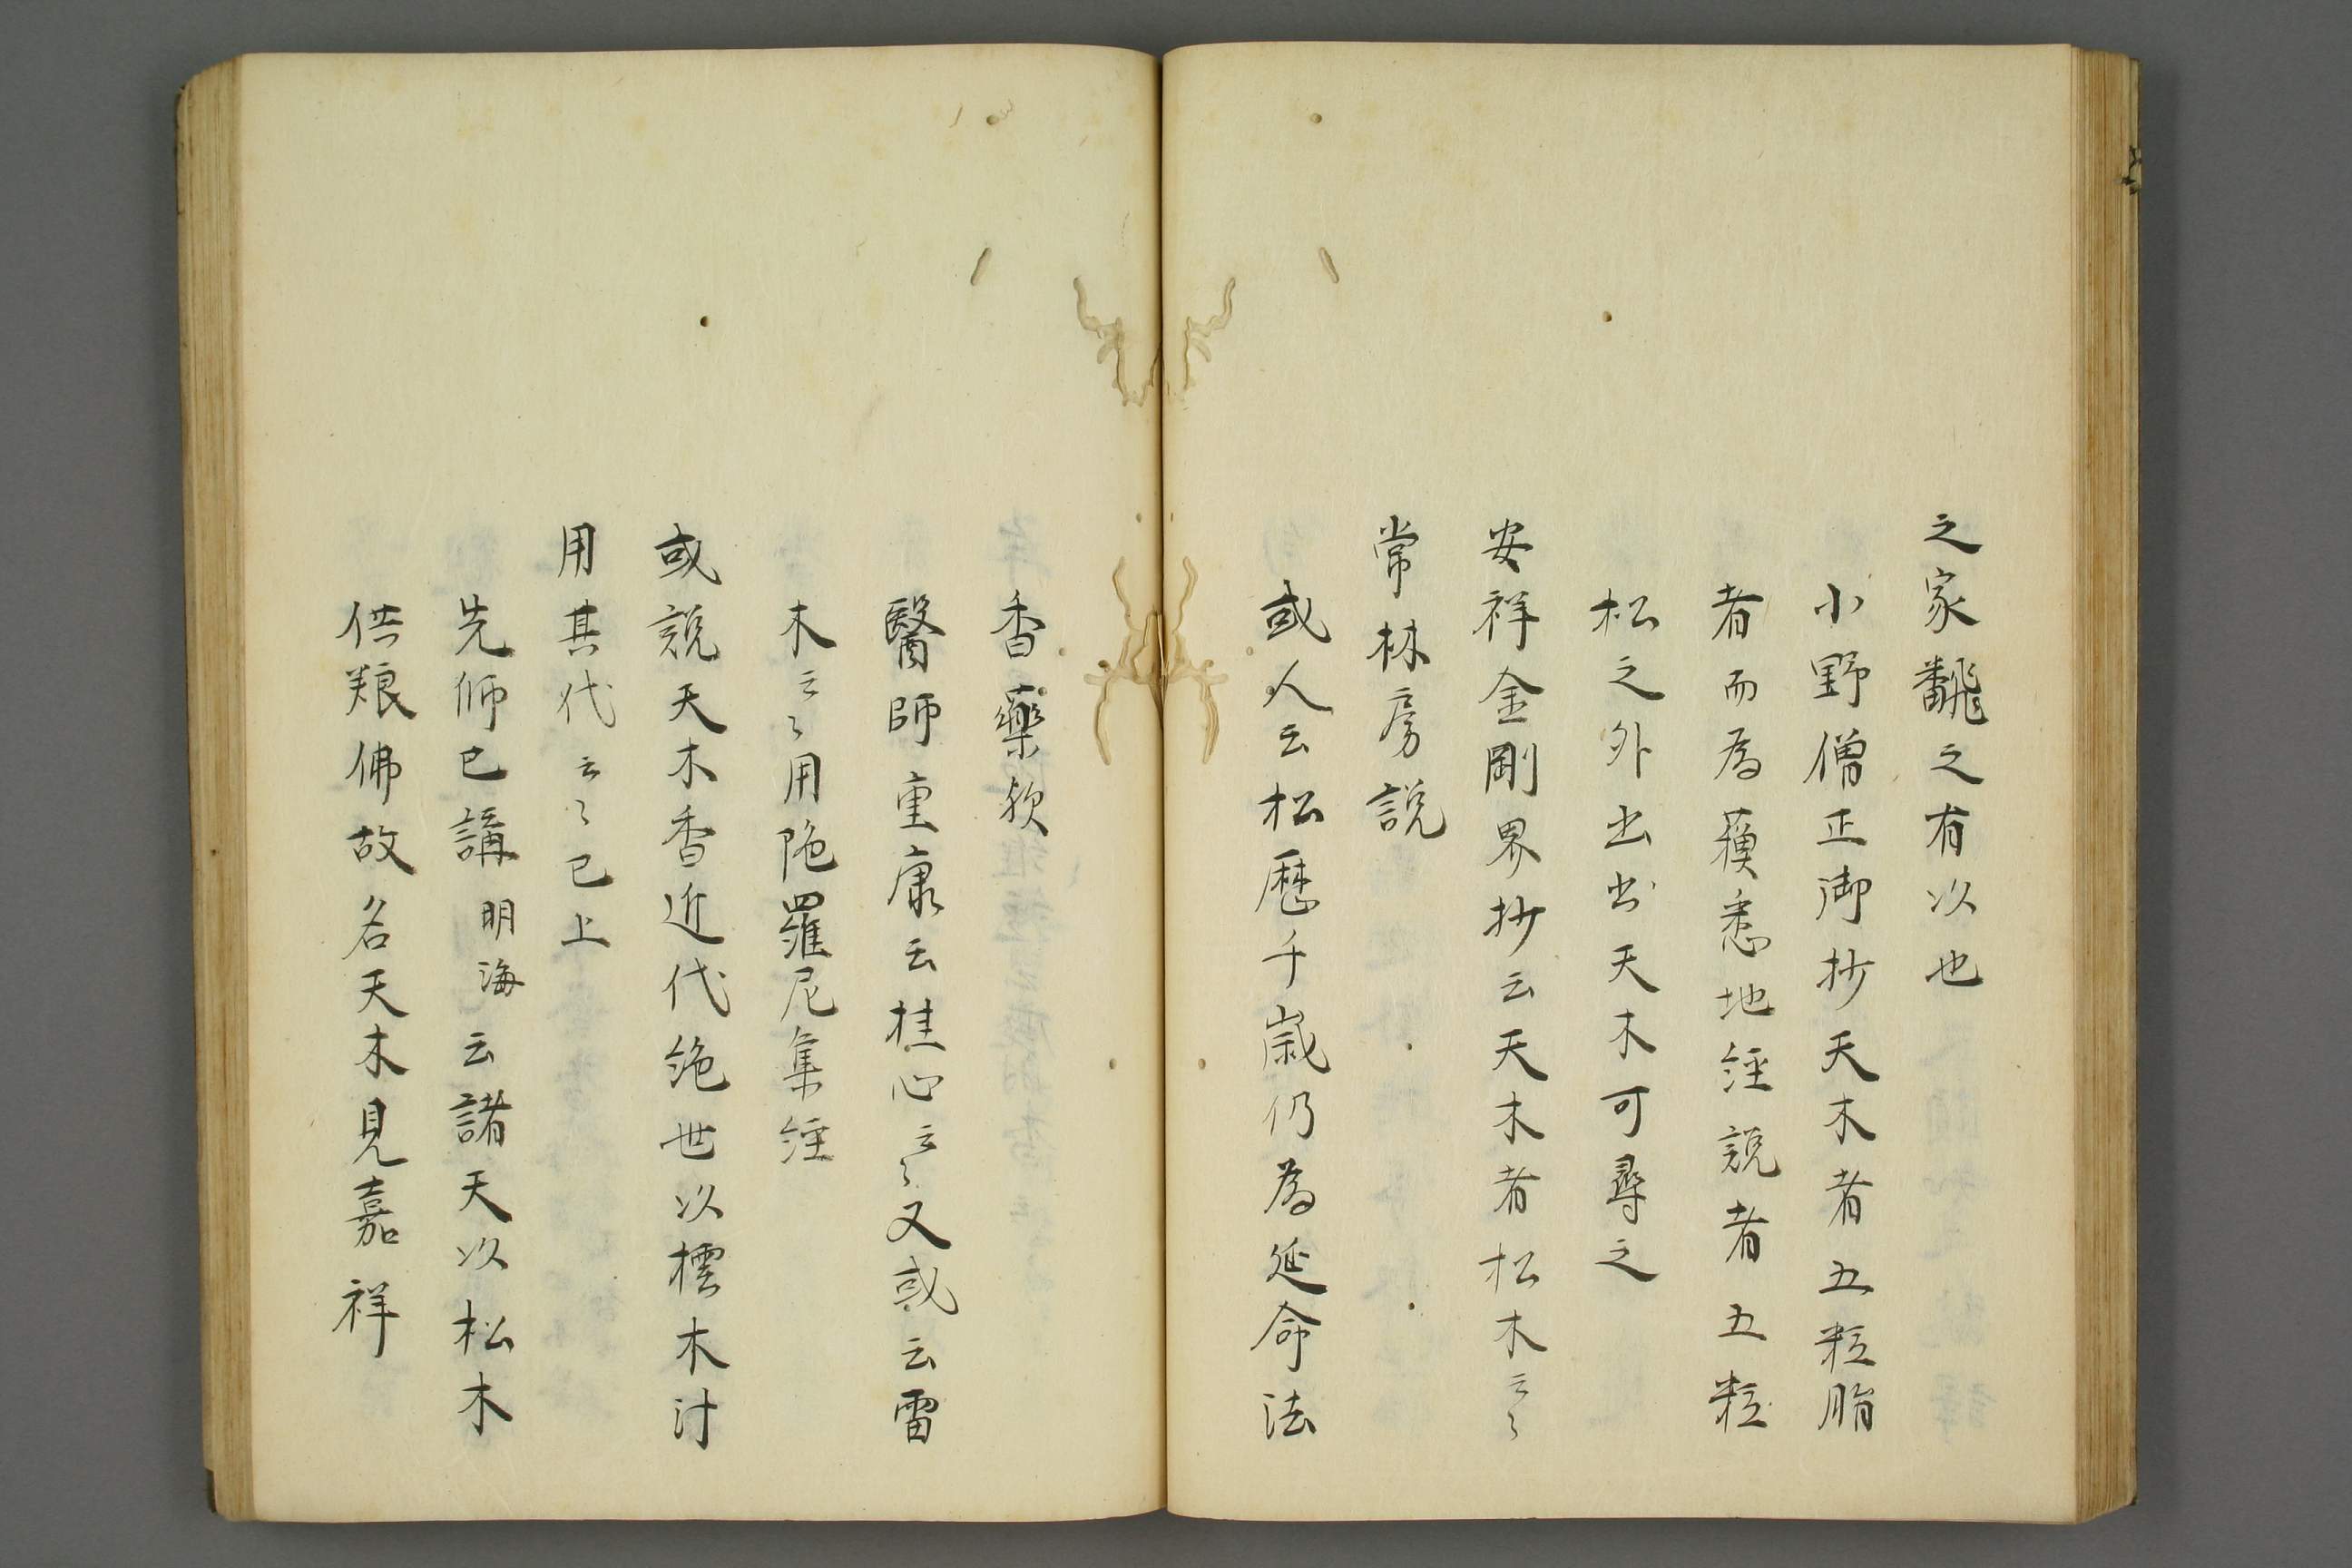 之家飜之有以也
小野僧正御抄天木者五粒脂
者而為蘓悉地經説者五粒
松之外出出天木可尋之
安祥金剛界抄云天木者松木云々
常林房説
或人云松歴千歳仍為延命法
香藥欤
醫師重康云桂心云々又或云雷
木云々用陁羅尼集經
或説天木香近代絶世以樰木汁
用其代云々已上
先師已講明海云諸天以松木
供粮佛故名天木見嘉祥